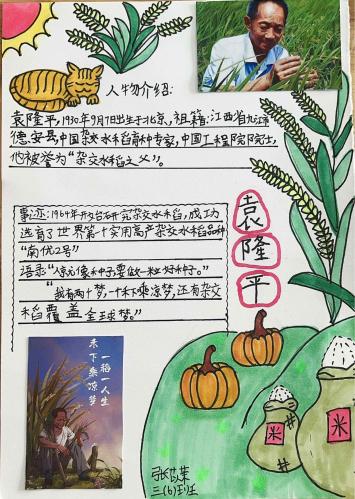 人物介绍:
袁隆平,1930年9月7日出生于北京,祖籍:江西省九江市
德安县,中国杂交水稻育种专家,中国工程院院士,
他被誉为“杂交水稻之父”。
袁
隆
平
事迹:1964年开始研究杂交水稻,成功
选育了世界第一个实用高产杂交水稻品种
“南优2号”
语录“人就像种子要做一粒好种子。”
“我有两个梦,一个禾下乘凉梦,还有杂交
稻覆盖全球梦。”
一稻一人生
禾下乘凉梦
米
米
三(6)班